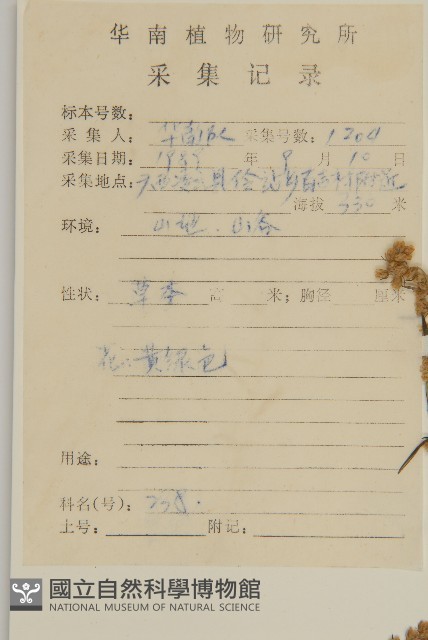 华南植物研究所
采集记录
标本号数:
采集人: 华南队 采集号数: 1204
采集日期: 年 9 月 10 日
采集地点:
海拔 米
环境: 山地. 山谷
性状: 草本 高 米; 胸径 厘米
花: 黄绿色
用途:
科名(号): 238.
土号: 附记:
國立自然科學博物館
NATIONAL MUSEUM OF NATURAL SCIENCE